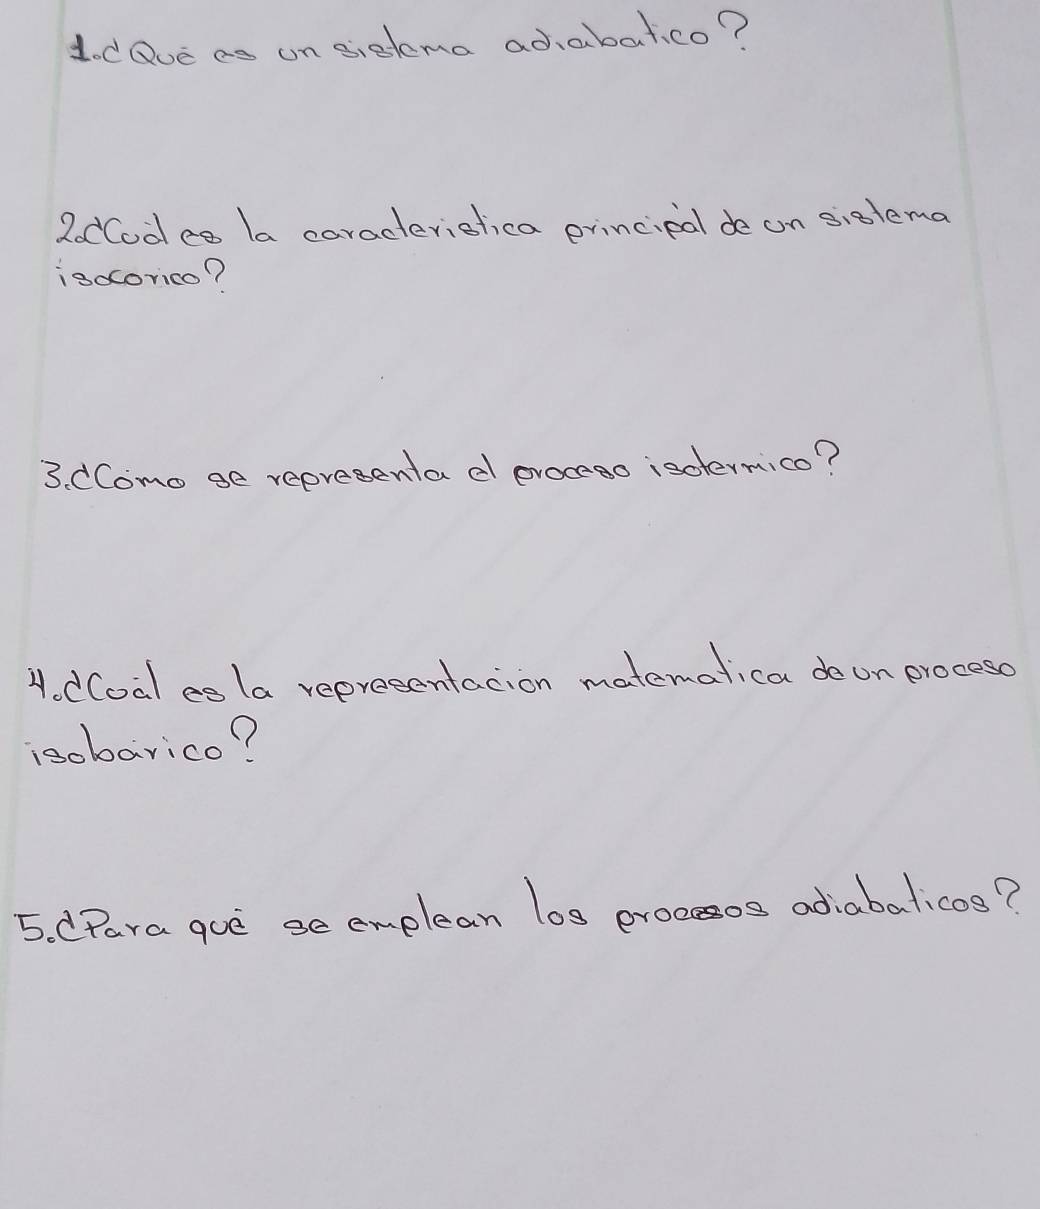 1.¿Qué es un sistema adiabatico?
2.¿Cuál es la caracteristica principal de un sistema
isocorico?
3.¿Cómo se representa el proceso isotermico?
4.¿Cuál es la representación matematica de un proceso
isobárico?
5.¿Para qué se emplean los procesos adiabaticos?